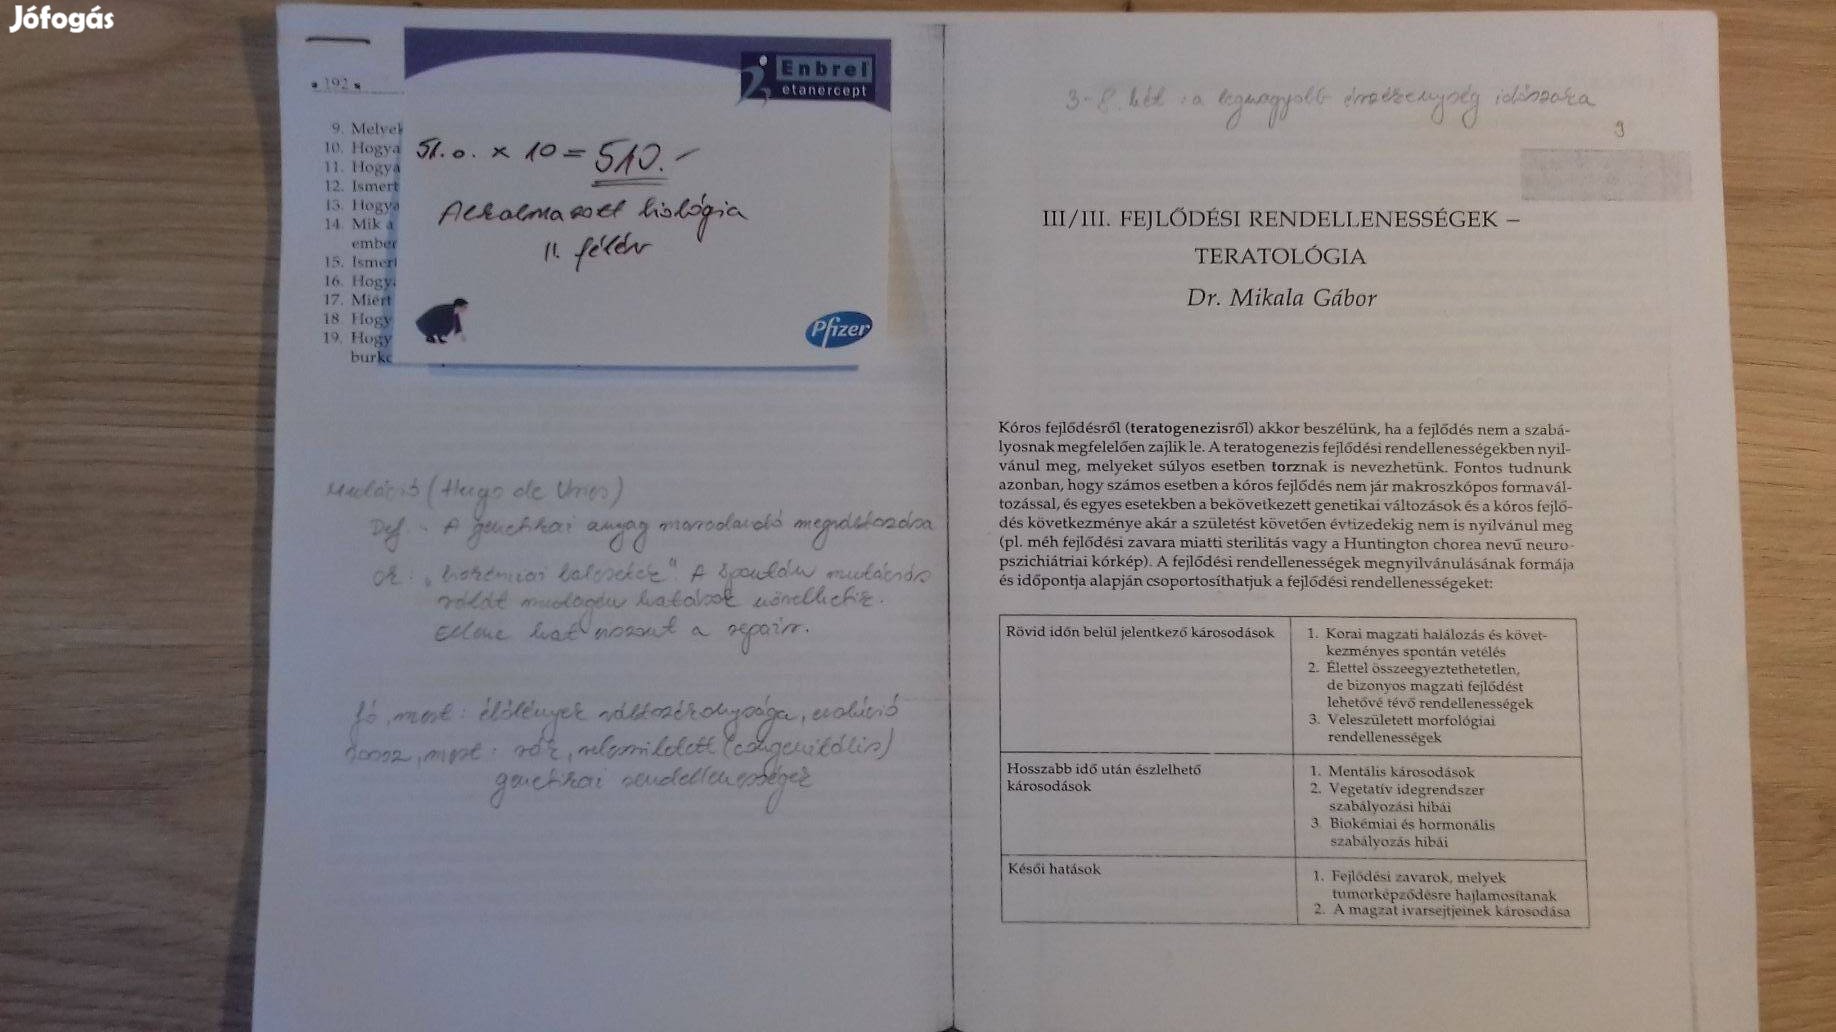 Jófogás
192
Enbrel
etanercept
51.o. x 10 = 510.-
Alkalmazott biológia
II. félév
Pfizer
9. Melyek
10. Hogya
11. Hogya
12. Ismert
13. Hogya
14. Mik a
ember
15. Ismert
16. Hogya
17. Miért
18. Hogy
19. Hogy
burko
Mutáció (Hugo de Vries)
Def. - A genetikai anyag maradandó megváltozása
Ok: A spontán mutációs
rátát mutagén hatások növelhetik.
Ellene hat viszont a repair.
Jó, mert: élőlények változékonysága, evolúció
rossz, mert: rák, veleszületett (congenitális)
genetikai rendellenességek
3-8. hét : a legnagyobb érzékenység időszaka
9
III/III. FEJLŐDÉSI RENDELLENESSÉGEK –
TERATOLÓGIA
Dr. Mikala Gábor
Kóros fejlődésről (teratogenezisről) akkor beszélünk, ha a fejlődés nem a szabá-
lyosnak megfelelően zajlik le. A teratogenezis fejlődési rendellenességekben nyil-
vánul meg, melyeket súlyos esetben torznak is nevezhetünk. Fontos tudnunk
azonban, hogy számos esetben a kóros fejlődés nem jár makroszkópos formavál-
tozással, és egyes esetekben a bekövetkezett genetikai változások és a kóros fejlő-
dés következménye akár a születést követően évtizedekig nem is nyilvánul meg
(pl. méh fejlődési zavara miatti sterilitás vagy a Huntington chorea nevű neuro-
pszichiátriai kórkép). A fejlődési rendellenességek megnyilvánulásának formája
és időpontja alapján csoportosíthatjuk a fejlődési rendellenességeket:
Rövid időn belül jelentkező károsodások
1. Korai magzati halálozás és követ-
kezményes spontán vetélés
2. Élettel összeegyeztethetetlen,
de bizonyos magzati fejlődést
lehetővé tévő rendellenességek
3. Veleszületett morfológiai
rendellenességek
Hosszabb idő után észlelhető
károsodások
1. Mentális károsodások
2. Vegetatív idegrendszer
szabályozási hibái
3. Biokémiai és hormonális
szabályozás hibái
Késői hatások
1. Fejlődési zavarok, melyek
tumorképződésre hajlamosítanak
2. A magzat ivarsejtjeinek károsodása